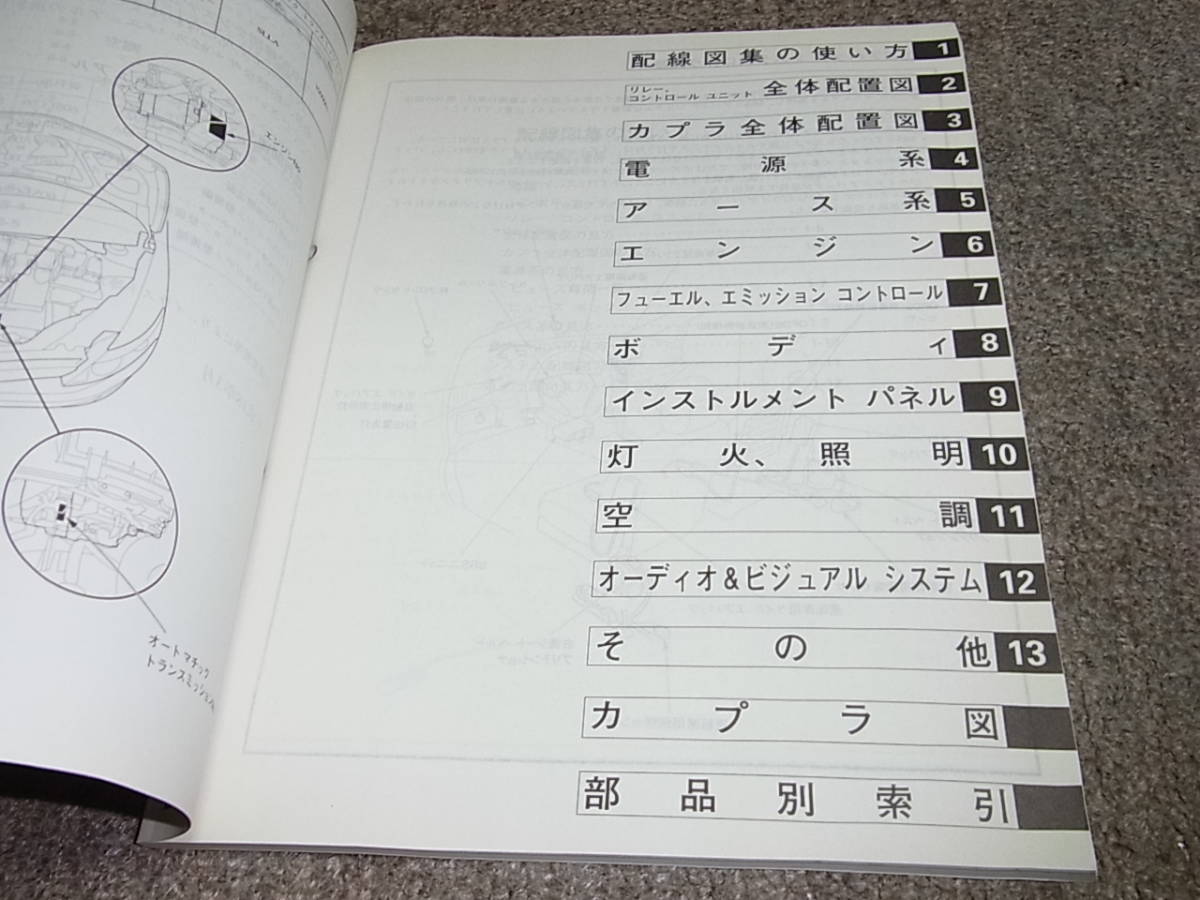 エンジン
オートマチック
トランスミッション
配線図集の使い方 1
リレー、
コントロール ユニット 全体配置図 2
カプラ全体配置図 3
電源系 4
アース系 5
エンジン 6
フューエル、エミッション コントロール 7
ボディ 8
インストルメント パネル 9
灯火、照明 10
空調 11
オーディオ&ビジュアル システム 12
その他 13
カプラ図
部品別索引